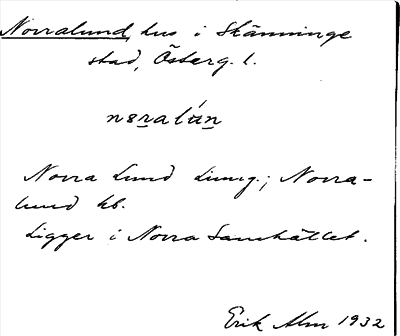 Norralund, hus i Skänninge
stad, Österg. l.
nɷra lún
Norra Lund ; Norra-
lund kb.
Ligger i Norra Samhället.
Erik Alm 1932